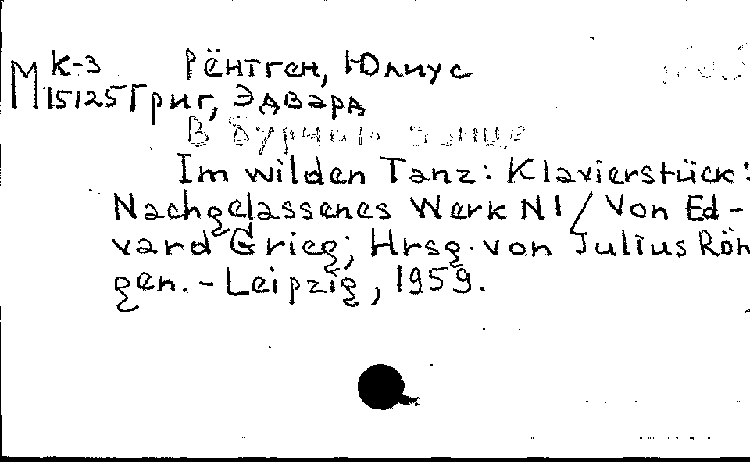 М К-3 Рёнтген, Юлиус
15125 Григ, Эдвард
В бурном танце
Im wilden Tanz: Klavierstück:
Nachgelassenes Werk N1 / Von Ed-
vard Grieg; Hrsg. von Julius Rön
gen. - Leipzig, 1959.